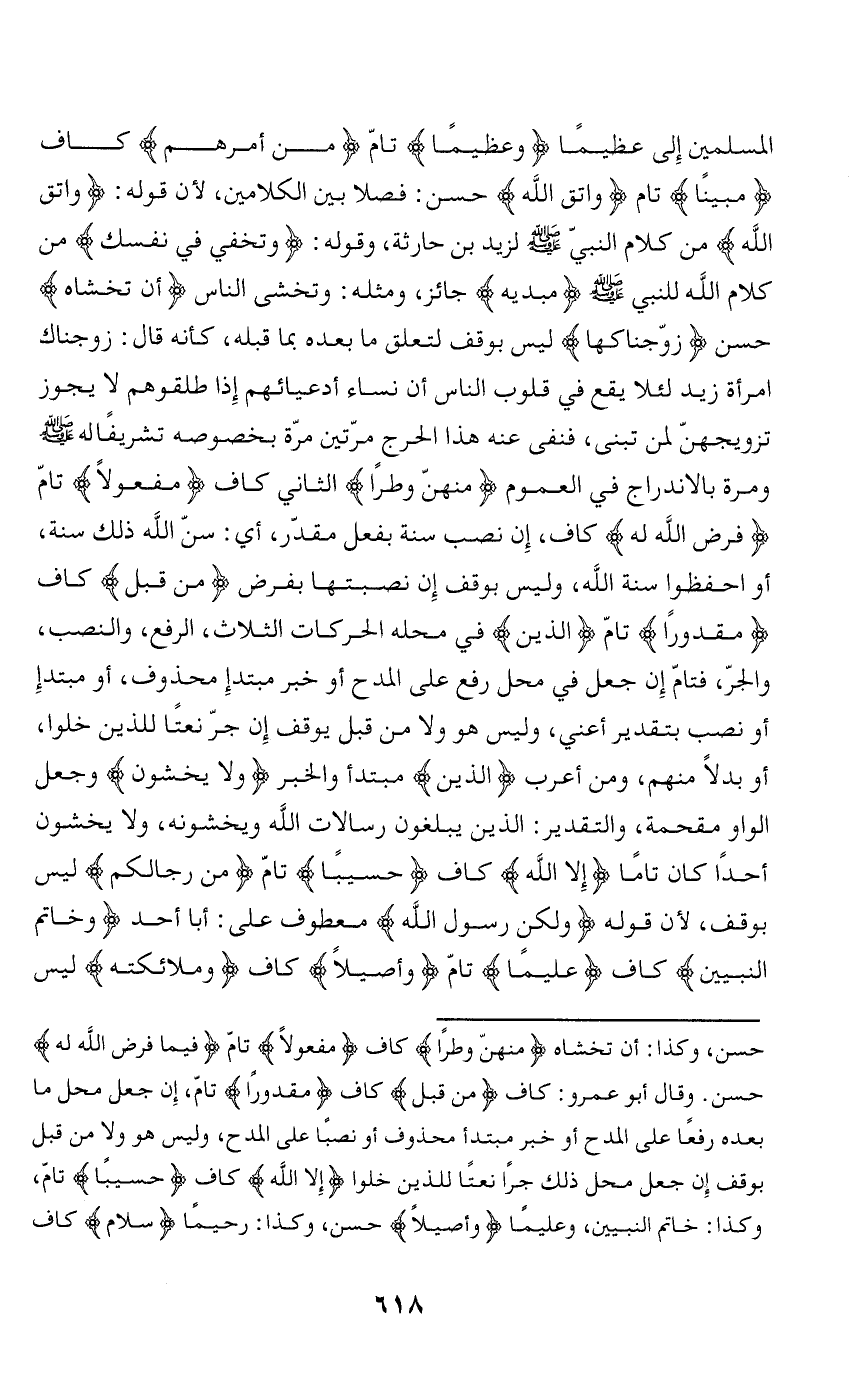 المسلمين إلى عظيمًا ﴿وعظيمًا﴾ تامّ ﴿من أمرهم﴾ كاف
﴿مبينًا﴾ تام ﴿واتق الله﴾ حسن: فصلا بين الكلامين، لأن قوله: ﴿واتق
الله﴾ من كلام النبيّ ﷺ لزيد بن حارثة، وقوله: ﴿وتخفي في نفسك﴾ من
كلام الله للنبي ﷺ ﴿مبديه﴾ جائز، ومثله: وتخشى الناس ﴿أن تخشاه﴾
حسن ﴿زوّجناكها﴾ ليس بوقف لتعلق ما بعده بما قبله، كأنه قال: زوجناك
امرأة زيد لئلا يقع في قلوب الناس أن نساء أدعيائهم إذا طلقوهم لا يجوز
تزويجهنّ لمن تبنى، فنفى عنه هذا الحرج مرّتين مرّة بخصوصه تشريفًا له ﷺ
ومرة بالاندراج في العموم ﴿منهنّ وطراً﴾ الثاني كاف ﴿مفعولاً﴾ تامّ
﴿فرض الله له﴾ كاف، إن نصب سنة بفعل مقدّر، أي: سنّ الله ذلك سنة،
أو احفظوا سنة الله، وليس بوقف إن نصبتها بفرض ﴿من قبل﴾ كاف
﴿مقدوراً﴾ تامّ ﴿الذين﴾ في محله الحركات الثلاث، الرفع، والنصب،
والجرّ، فتامّ إن جعل في محل رفع على المدح أو خبر مبتدإ محذوف، أو مبتدإ
أو نصب بتقدير أعني، وليس هو ولا من قبل يوقف إن جرّ نعتًا للذين خلوا،
أو بدلاً منهم، ومن أعرب ﴿الذين﴾ مبتدأ والخبر ﴿ولا يخشون﴾ وجعل
الواو مقحمة، والتقدير: الذين يبلغون رسالات الله ويخشونه، ولا يخشون
أحداً كان تامًا ﴿إلا الله﴾ كاف ﴿حسيبًا﴾ تامّ ﴿من رجالكم﴾ ليس
بوقف، لأن قوله ﴿ولكن رسول الله﴾ معطوف على: أبا أحد ﴿وخاتم
النبيين﴾ كاف ﴿عليمًا﴾ تامّ ﴿وأصيلاً﴾ كاف ﴿وملائكته﴾ ليس
حسن، وكذا: أن تخشاه ﴿منهنّ وطراً﴾ كاف ﴿مفعولاً﴾ تامّ ﴿فيما فرض الله له﴾
حسن. وقال أبو عمرو: كاف ﴿من قبل﴾ كاف ﴿مقدوراً﴾ تامّ، إن جعل محل ما
بعده رفعًا على المدح أو خبر مبتدأ محذوف أو نصبًا على المدح، وليس هو ولا من قبل
بوقف إن جعل محل ذلك جرًا نعتًا للذين خلوا ﴿إلا الله﴾ كاف ﴿حسيبًا﴾ تامّ،
وكذا: خاتم النبيين، وعليمًا ﴿وأصيلاً﴾ حسن، وكذا: رحيمًا ﴿سلام﴾ كاف
٦١٨